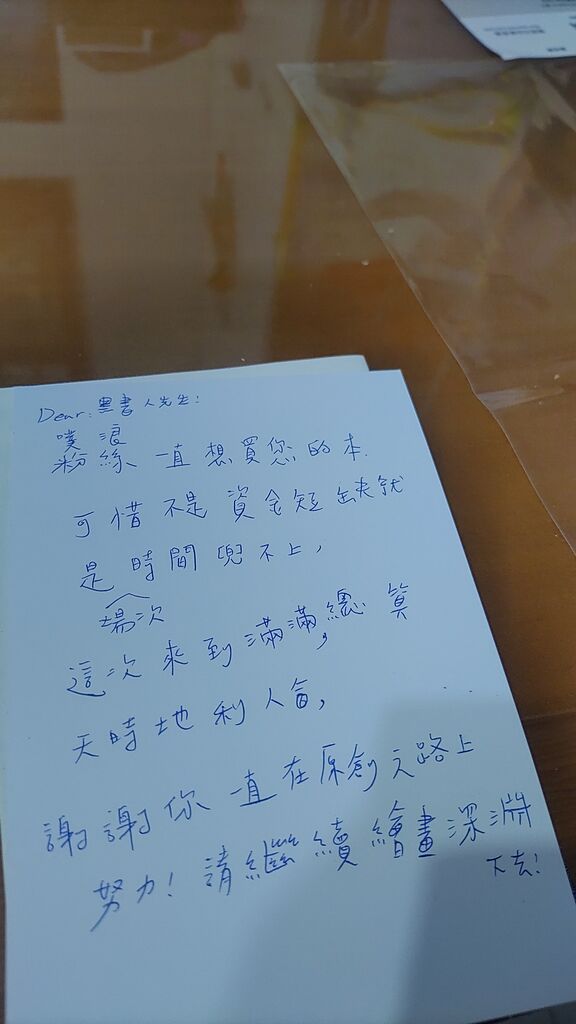 Dear:黑書人先生!
噗浪
粉絲一直想買您的本.
可惜不是資金短缺就
是時間兜不上,
場次
這次來到滿滿,總算
天時地利人
謝謝你一直在原創之路上
努力!請繼續繪畫深淵
下去!